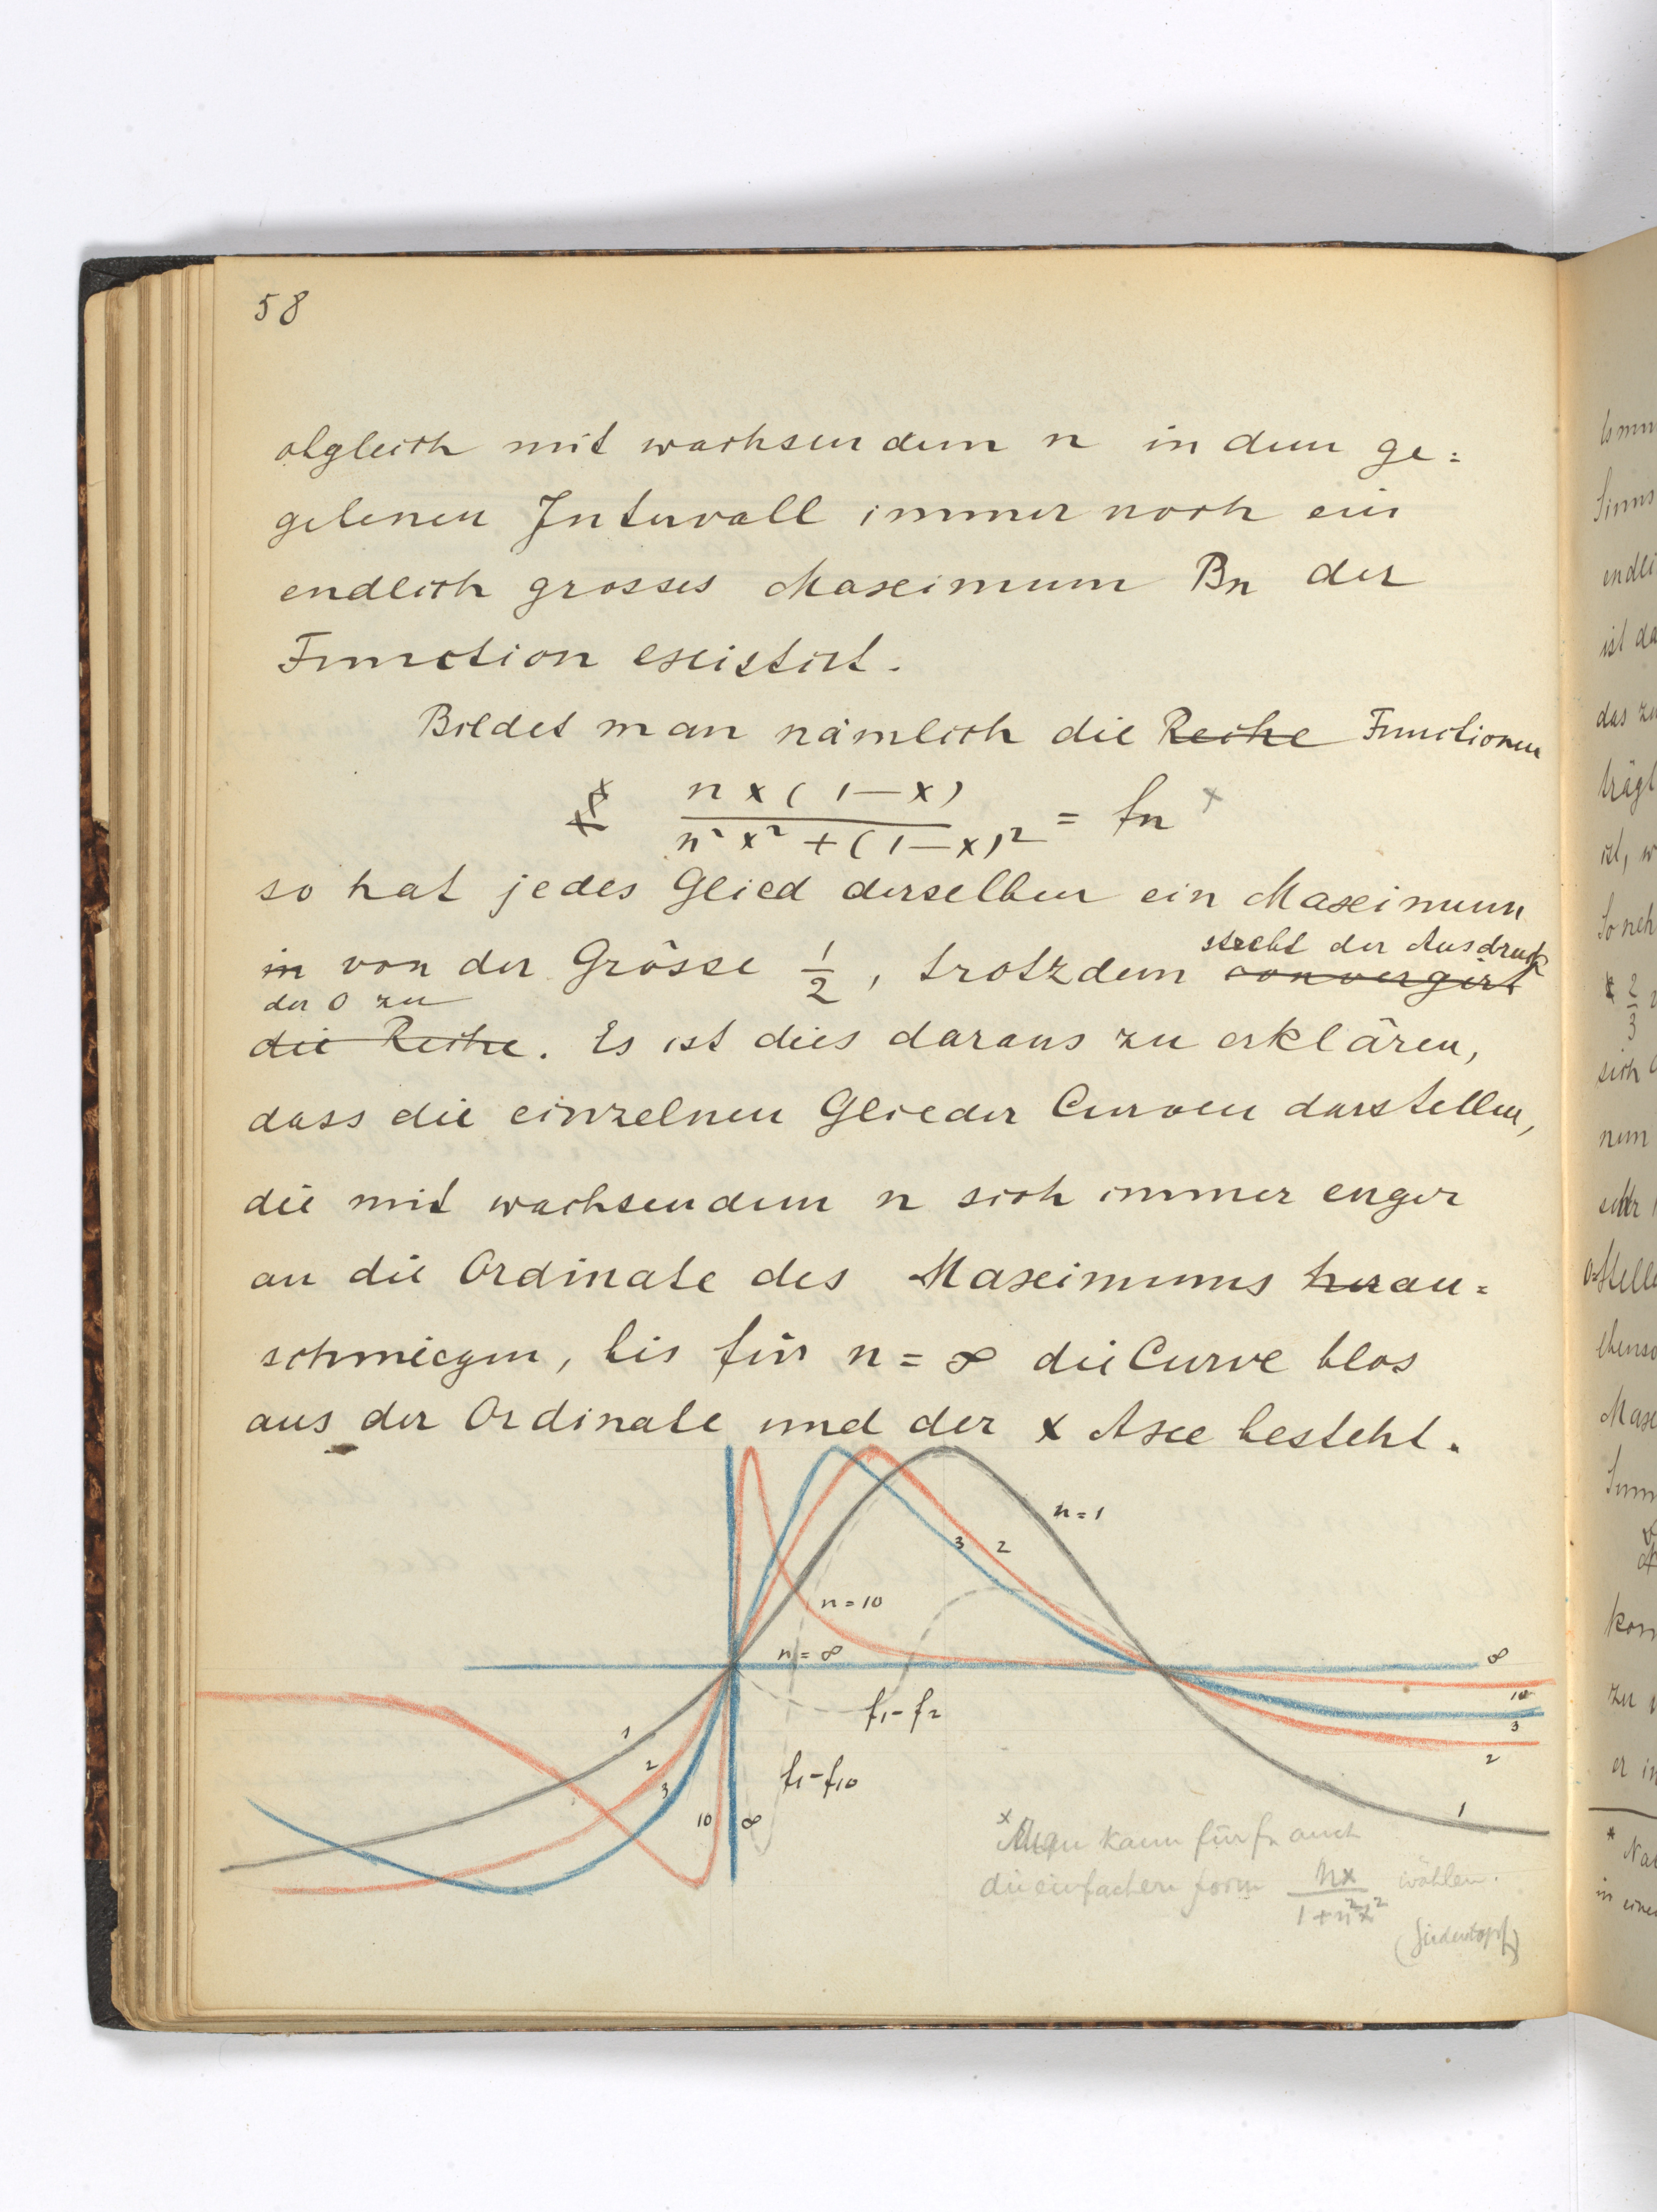 58
obgleich mit wachsendem n in dem ge=
gebenen Intervall immer noch ein
endlich grosses Maximum Bn der
Function existirt.
Bildet man nämlich die Reihe Functionen
nx(1-x) / n²x²+(1-x)² = fn x
so hat jedes Glied derselben ein Maximum
in von der Grösse 1/2, trotzdem convergirt
strebt der Ausdruck
der 0 zu
die Reihe. Es ist dies daraus zu erklären,
dass die einzelnen Glieder Curven darstellen,
die mit wachsendem n sich immer enger
an die Ordinate des Maximums heran=
schmiegen, bis für n = ∞ die Curve blos
aus der Ordinate und der x Axe besteht.
n=1
3 2
n=10
n=∞
∞
10
3
2
1
f1-f2
f1-f10
1
2
3
10 ∞
x Man kann für fn auch
die einfachere Form nx / 1+n²x² wählen.